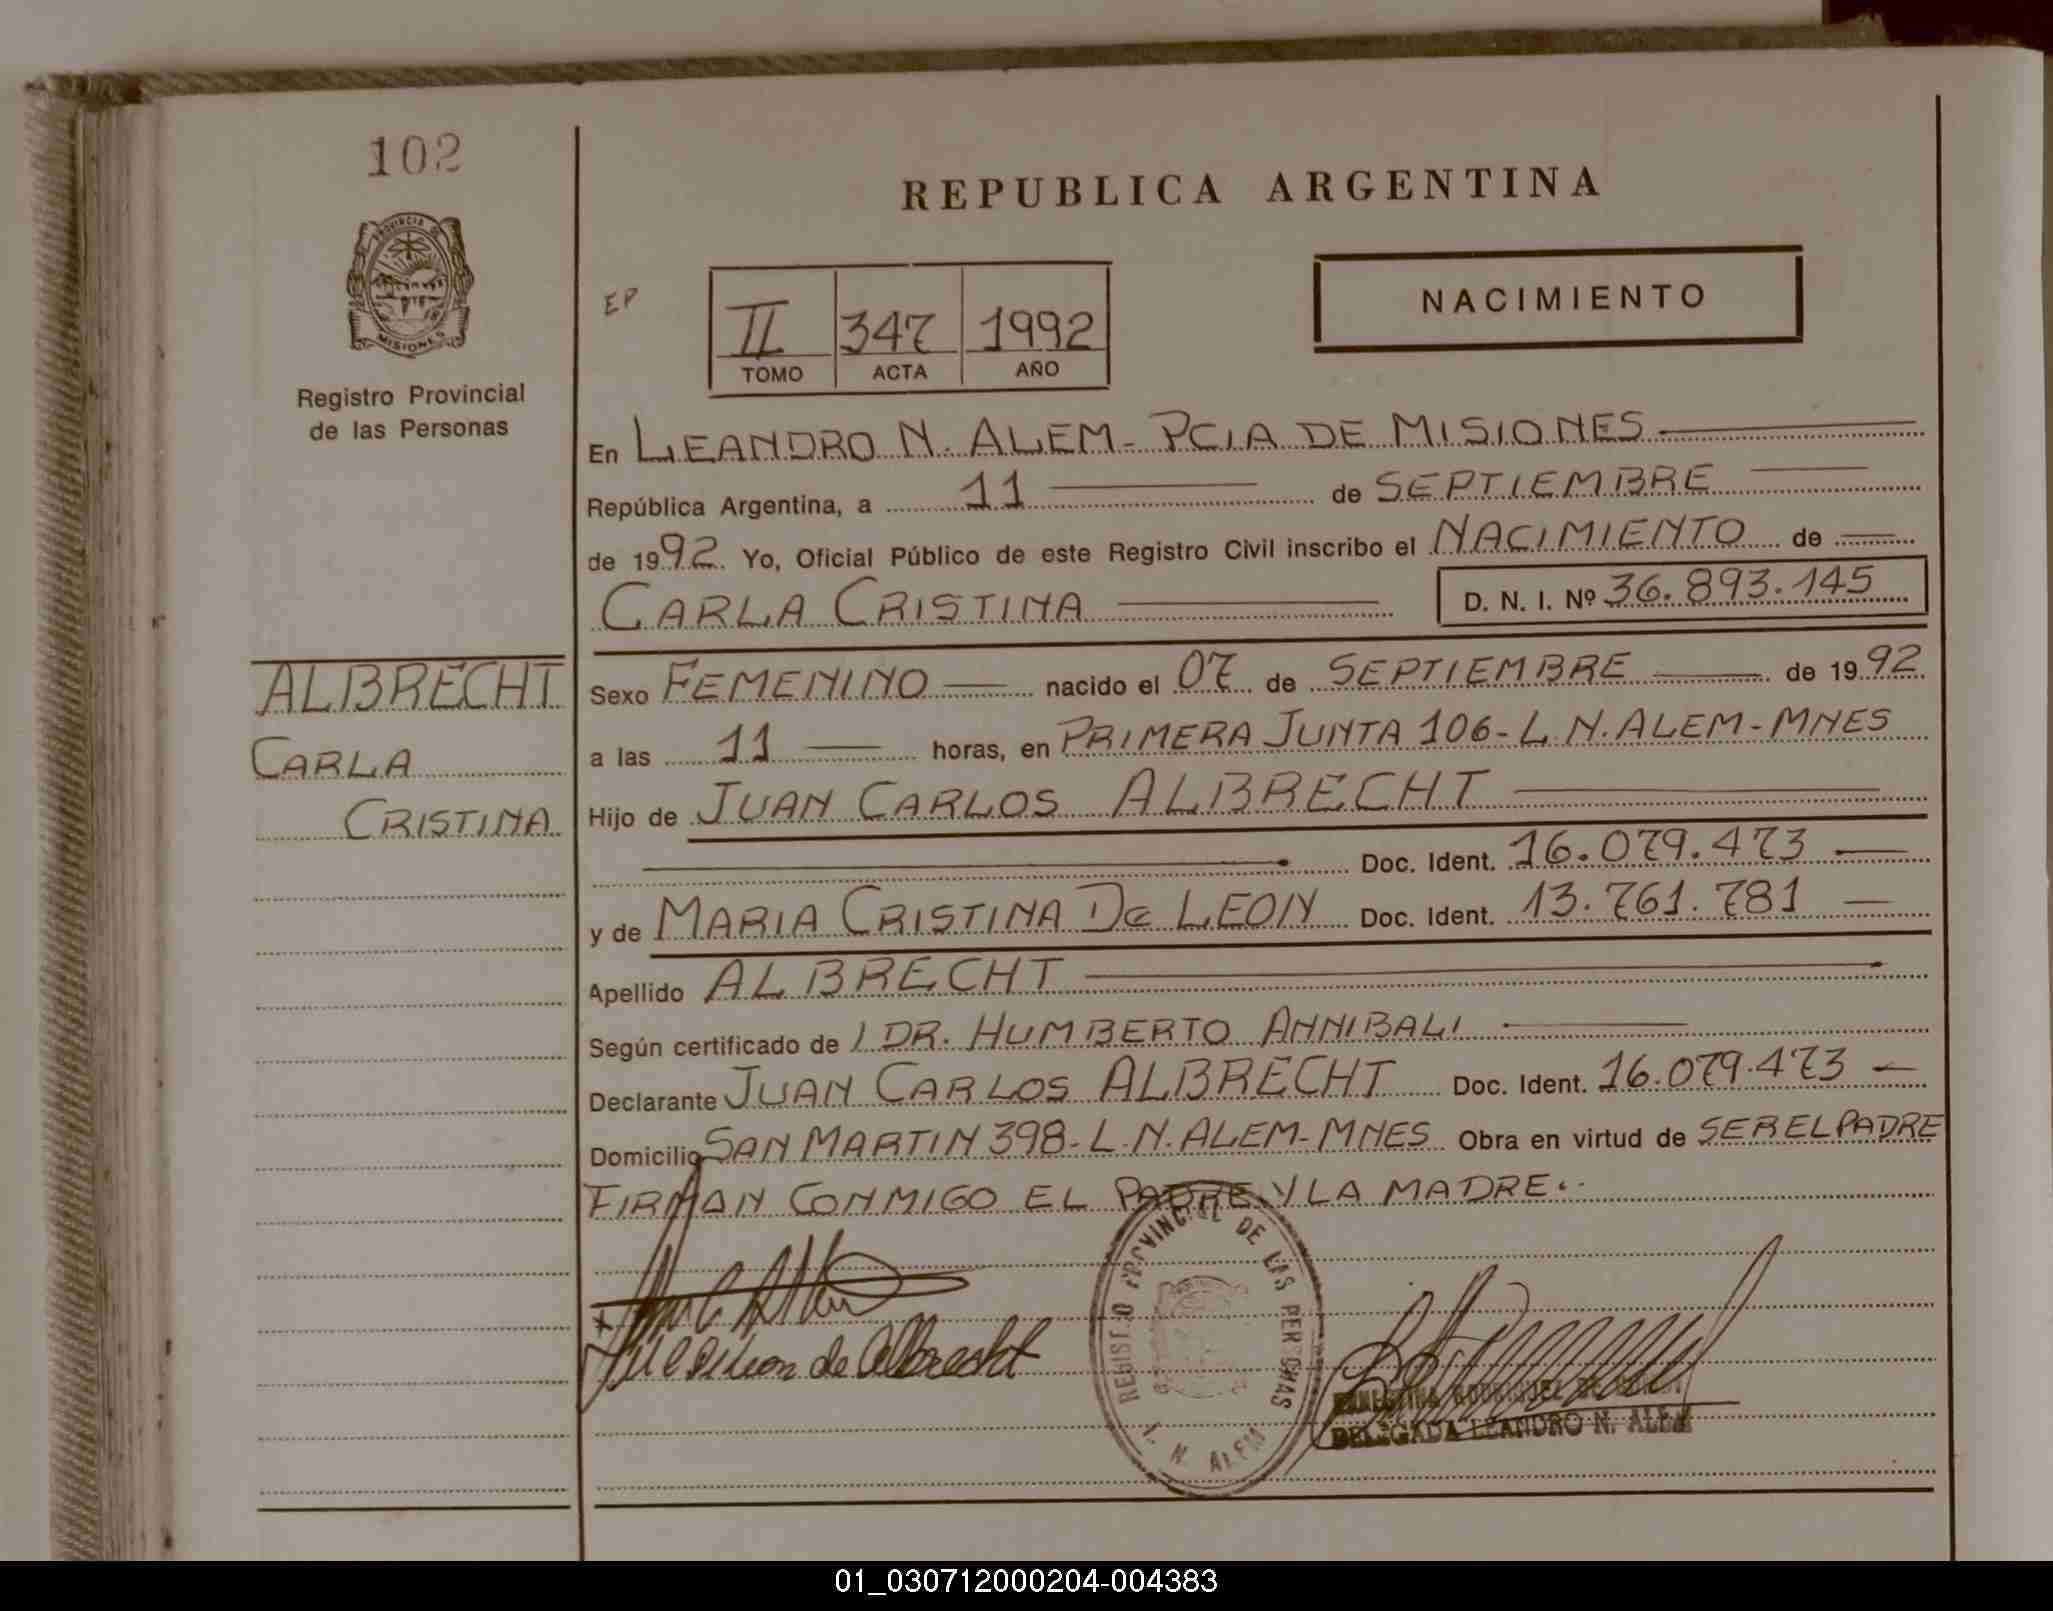 102
PROVINCIA DE
MISIONES
Registro Provincial
de las Personas
ALBRECHT
CARLA
CRISTINA
REPUBLICA ARGENTINA
EP
II 347 1992
TOMO ACTA AÑO
NACIMIENTO
En LEANDRO N. ALEM - PCIA DE MISIONES
República Argentina, a 11 de SEPTIEMBRE
de 1992 Yo, Oficial Público de este Registro Civil inscribo el NACIMIENTO de
CARLA CRISTINA D. N. I. Nº 36.893.145
Sexo FEMENINO nacido el 07 de SEPTIEMBRE de 1992
a las 11 horas, en PRIMERA JUNTA 106 - L. N. ALEM - MNES
Hijo de JUAN CARLOS ALBRECHT
Doc. Ident. 16.079.473
y de MARIA CRISTINA De LEON Doc. Ident. 13.761.781
Apellido ALBRECHT
Según certificado de / DR. HUMBERTO ANNIBALI
Declarante JUAN CARLOS ALBRECHT Doc. Ident. 16.079.473
Domicilio SAN MARTIN 398 - L. N. ALEM - MNES Obra en virtud de SER EL PADRE
FIRMAN CONMIGO EL PADRE Y LA MADRE..
de Albrecht
REGISTRO PROVINCIAL DE LAS PERSONAS
L. N. ALEM
ERNESTINA RODRIGUEZ DE
DELEGADA LEANDRO N. ALEM
01_030712000204-004383